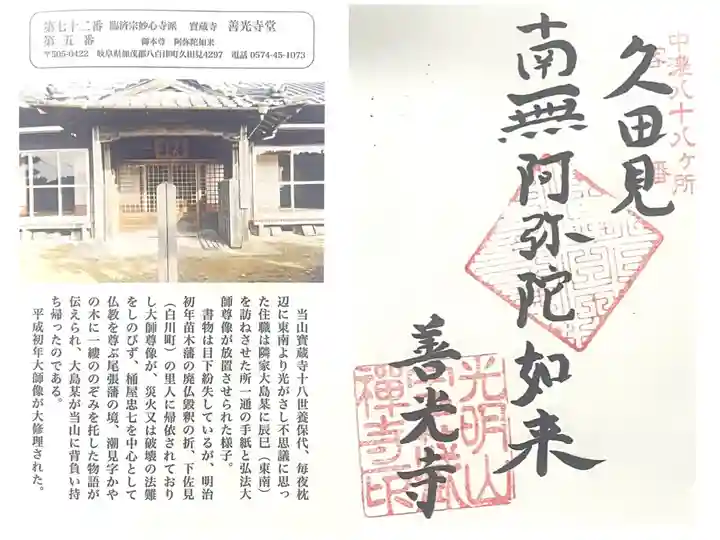 第七十二番 臨済宗妙心寺派 寳蔵寺 善光寺堂
第五番 御本尊 阿弥陀如来
〒505-0422 岐阜県加茂郡八百津町久田見4297 電話 0574-45-1073
当山寳蔵寺十八世養保代、毎夜枕
辺に東南より光がさし不思議に思っ
た住職は隣家大島某に辰巳（東南）
を訪ねさせた所一通の手紙と弘法大
師尊像が放置させられた様子。
書物は目下紛失しているが、明治
初年苗木藩の廃仏毀釈の折、下佐見
（白川町）の里人に帰依されており
し大師尊像が、災火又は破壊の法難
をしのびず、桶屋忠七を中心として
仏教を尊ぶ尾張藩の境、潮見字かや
の木に一縷ののぞみを托した物語が
伝えられ、大島某が当山に背負い持
ち帰ったのである。
平成初年大師像が大修理された。
中濃八十八ヶ所
番
久田見
南無阿弥陀如来
善光寺
光明山
寳蔵
禅寺印